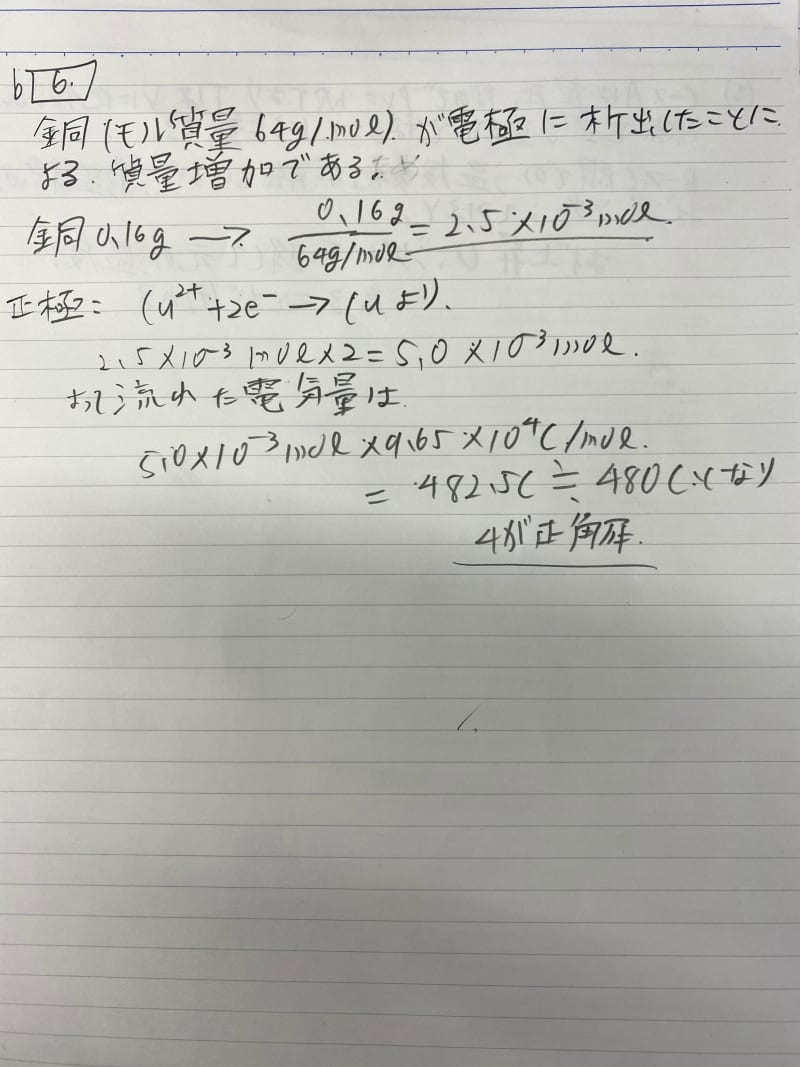 b 6.
銅(モル質量64g/mol).が電極に析出したことに
よる.質量増加である.
銅0.16g → 0.16g/64g/mol = 2.5×10⁻³mol.
正極= Cu²⁺+2e⁻→Cuより.
2.5×10⁻³mol×2=5.0×10⁻³mol.
よって流れた電気量は
5.0×10⁻³mol×9.65×10⁴C/mol.
= 482.5C≒480C.となり
4が正解.